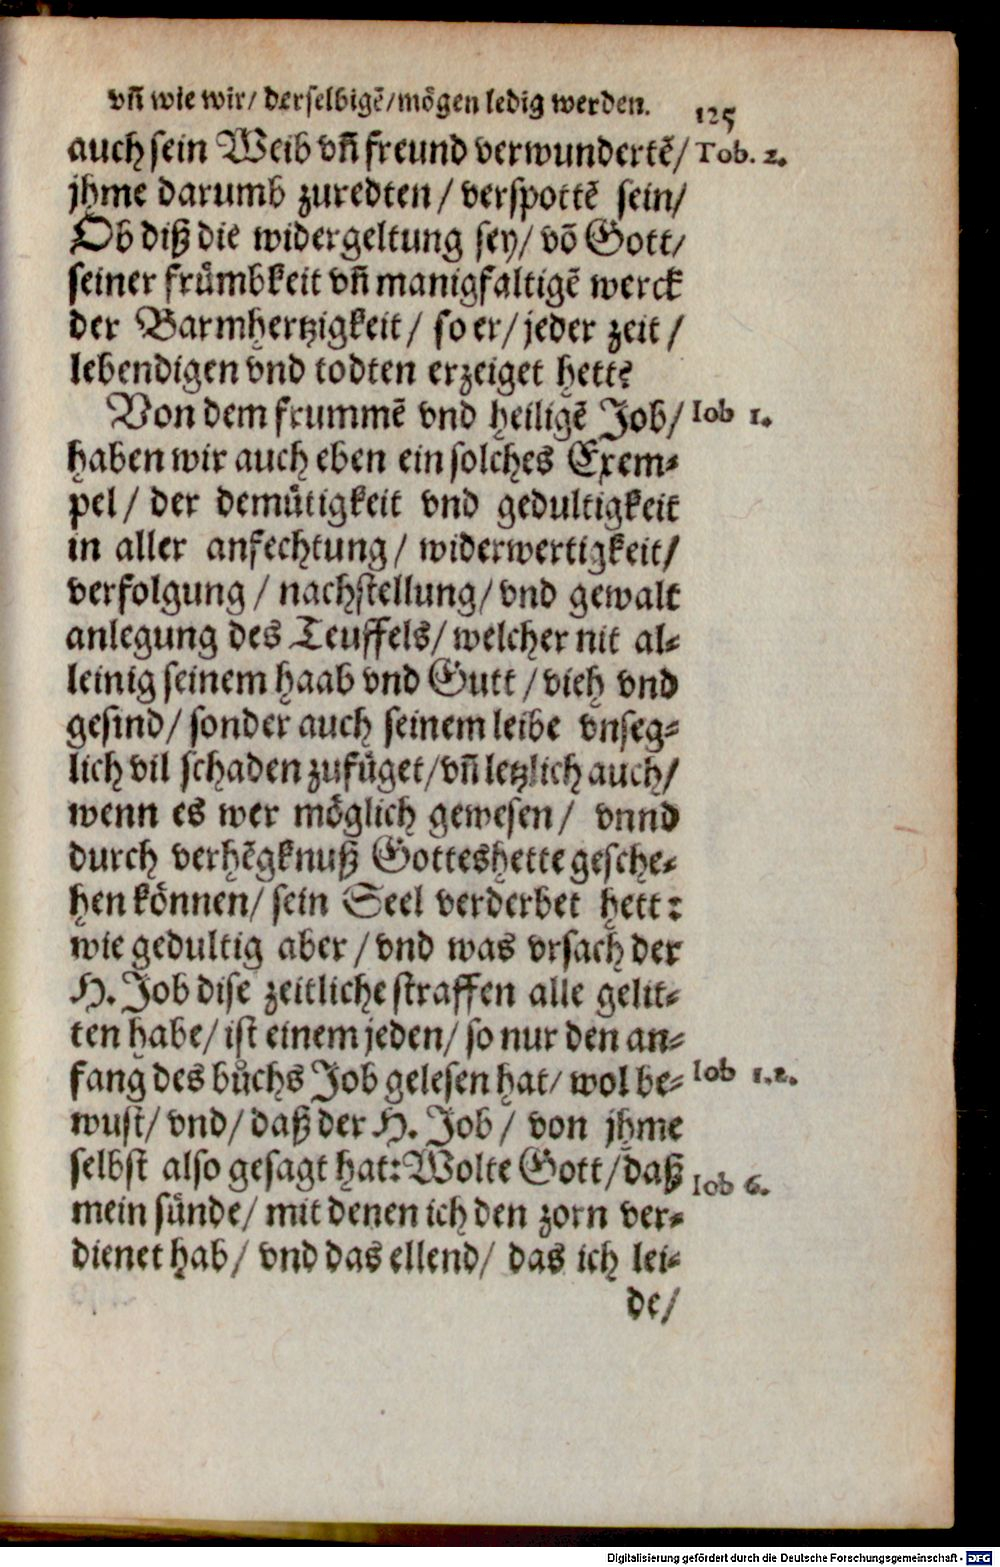 vn̄ wie wir/ derselbigē/mögen ledig werden. 125
auch sein Weib vn̄ freund verwundertē/ Tob. 2.
jhme darumb zuredten/ verspottē sein/
Ob diß die widergeltung sey/ vō Gott/
seiner frůmbkeit vn̄ manigfaltigē werck
der Barmhertzigkeit/ so er/ jeder zeit/
lebendigen vnd todten erzeiget hett?
Von dem frummē vnd heiligē Job/ Iob 1.
haben wir auch eben ein solches Exem-
pel/ der demůtigkeit vnd gedultigkeit
in aller anfechtung/ widerwertigkeit/
verfolgung/ nachstellung/ vnd gewalt
anlegung des Teuffels/ welcher nit al-
leinig seinem haab vnd Gutt/ vieh vnd
gesind/ sonder auch seinem leibe vnseg-
lich vil schaden zufůget/ vn̄ letzlich auch/
wenn es wer möglich gewesen/ vnnd
durch verhēgknuß Gottes hette gesche-
hen können/ sein Seel verderbet hett:
wie gedultig aber/ vnd was vrsach der
H. Job dise zeitliche straffen alle gelit-
ten habe/ ist einem jeden/ so nur den an-
fang des bůchs Job gelesen hat/ wol be- Iob 1.2.
wust/ vnd/ daß der H. Job/ von jhme
selbst also gesagt hat: Wolte Gott/ daß Iob 6.
mein sůnde/ mit denen ich den zorn ver-
dienet hab/ vnd das ellend/ das ich lei-
de/
Digitalisierung gefördert durch die Deutsche Forschungsgemeinschaft - DFG